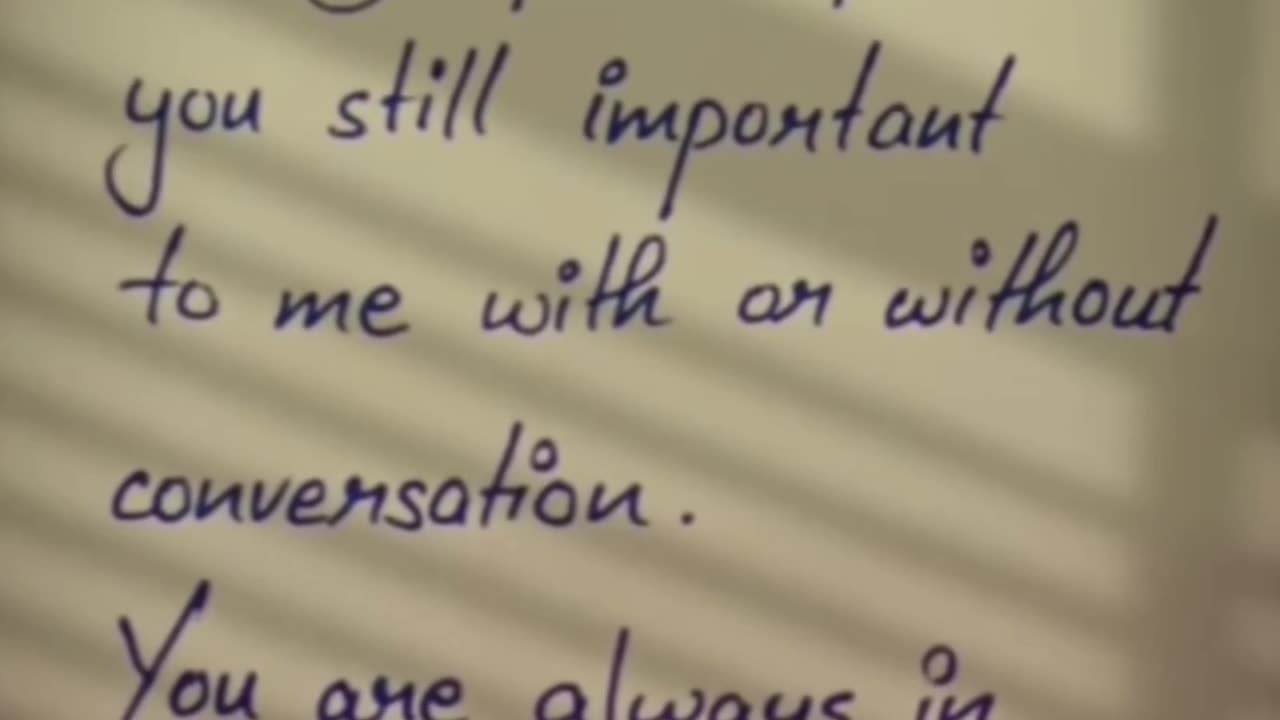 you still important
to me with or without
conversation.
You are always in